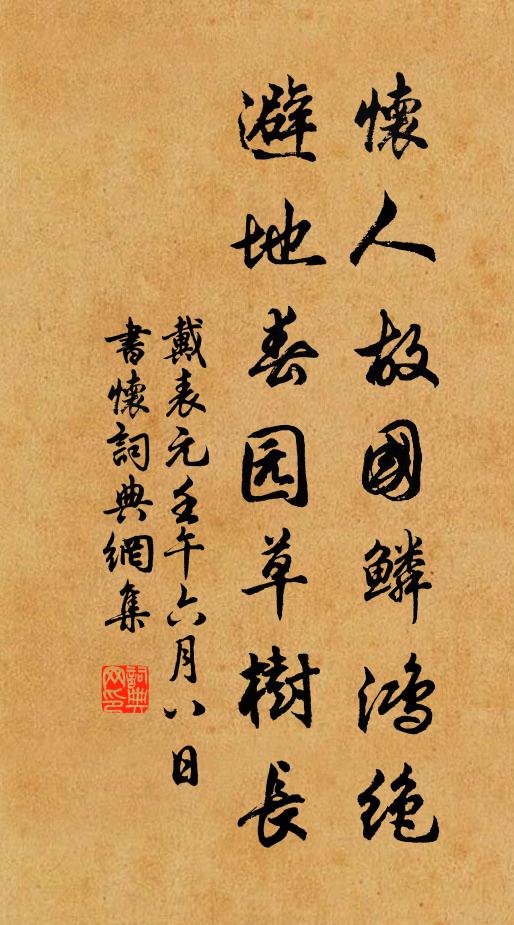 懷人故國鱗鴻絕
避地春园草樹長
戴表元壬午六月八日
書懷詞典網集
詞典
网印